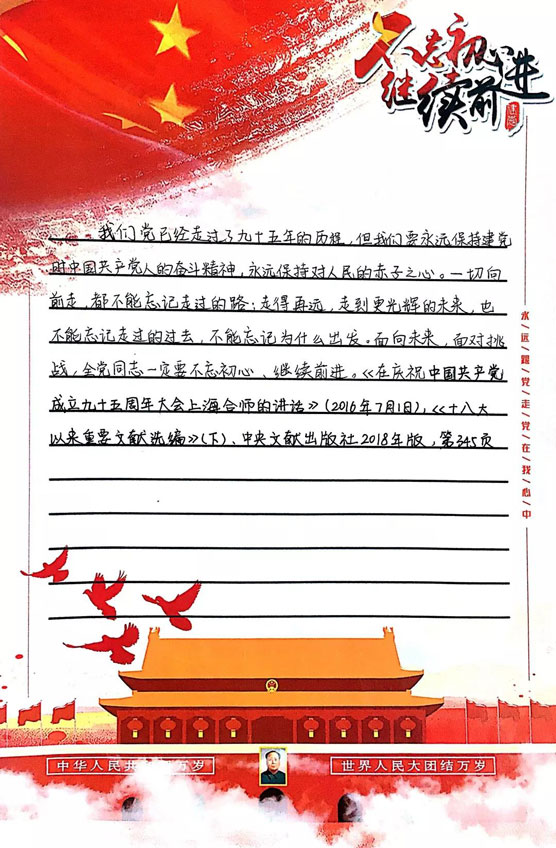 不忘初心
继续前进
我们党已经走过了九十五年的历程，但我们要永远保持建党
时中国共产党人的奋斗精神，永远保持对人民的赤子之心。一切向
前走，都不能忘记走过的路；走得再远，走到更光辉的未来，也
不能忘记走过的过去，不能忘记为什么出发。面向未来，面对挑
战，全党同志一定要不忘初心、继续前进。《在庆祝中国共产党
成立九十五周年大会上海合师的讲话》(2016年7月1日)，《十八大
以来重要文献选编》(下)、中央文献出版社2018年版，第345页
永远跟党走党在我心中
中华人民共 万岁
世界人民大团结万岁